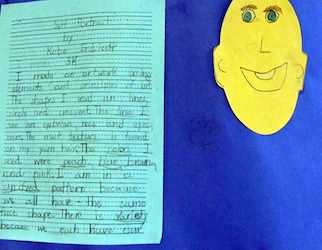 Self Portrait
by
Kobe
3R
I made an artwork using
elements and principles of art.
The shapes I used are lines,
circle and crescent. The lines I
see on eyebrows and
ears. The most texture is found
on my yarn hair. The colors I
used were peach, blue, brown,
and pink. I am in a
unified pattern because
we all have the same
face shape. There is variety
because we each have our